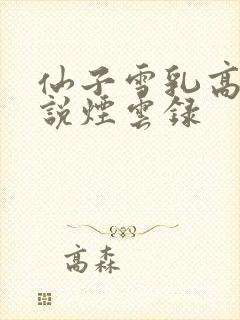 仙子雪乳高
說煙雲録
高森